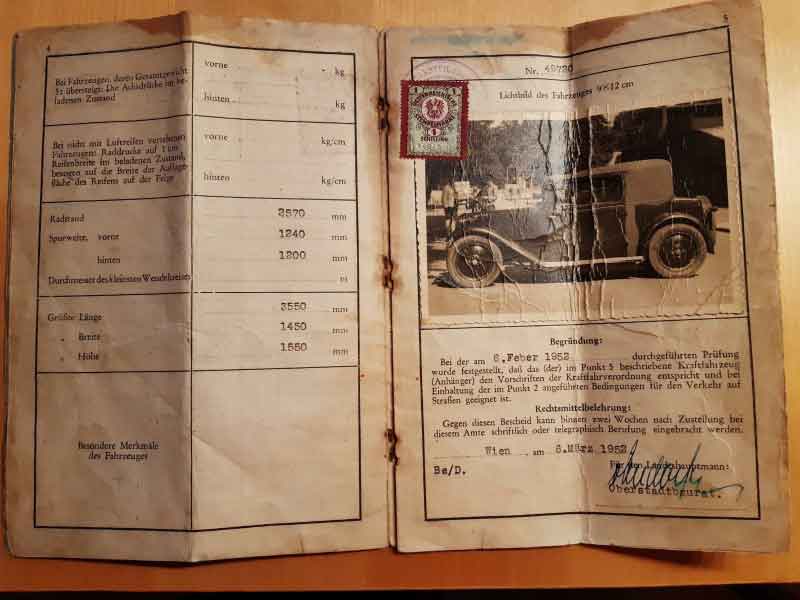 4
Bei Fahrzeugen, deren Gesamtgewicht
5t übersteigt: Die Achsdrücke im be-
ladenen Zustand
vorne - kg
hinten - kg
Bei nicht mit Luftreifen versehenen
Fahrzeugen: Raddrucke auf 1 cm
Reifenbreite im beladenen Zustand,
bezogen auf die Breite der Auflage-
fläche des Reifens auf der Felge
vorne kg/cm
hinten kg/cm
Radstand 2570 mm
Spurweite, vorne 1240 mm
hinten 1200 mm
Durchmesser des kleinsten Wendekreises m
Größte Länge 3550 mm
„ Breite 1450 mm
„ Höhe 1550 mm
Besondere Merkmale
des Fahrzeuges
5
Nr. 49720
Lichtbild des Fahrzeuges 9×12 cm
1 1
ÖSTERREICHISCHE
STEMPELMARKE
1
SCHILLING
Begründung:
Bei der am 6.Feber 1952 durchgeführten Prüfung
wurde festgestellt, daß das (der) im Punkt 5 beschriebene Kraftfahrzeug
(Anhänger) den Vorschriften der Kraftfahrverordnung entspricht und bei
Einhaltung der im Punkt 2 angeführten Bedingungen für den Verkehr auf
Straßen geeignet ist.
Rechtsmittelbelehrung:
Gegen diesen Bescheid kann binnen zwei Wochen nach Zustellung bei
diesem Amte schriftlich oder telegraphisch Berufung eingebracht werden.
Wien, am 6.März 1952
Be/D.
Für den Landeshauptmann:
Oberstadtbaurat.